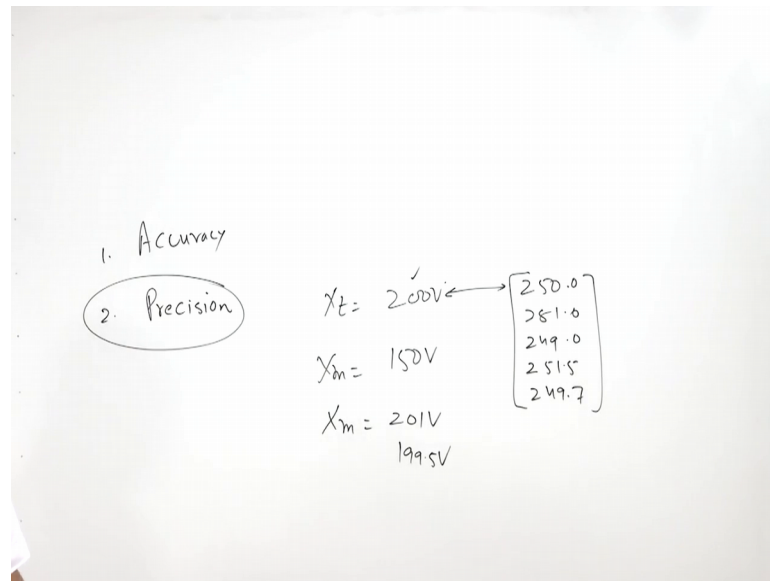 1. Accuracy
2. Precision
Xt = 200V
Xm = 150V
Xm = 201V
199.5V
250.0
251.0
249.0
251.5
249.7